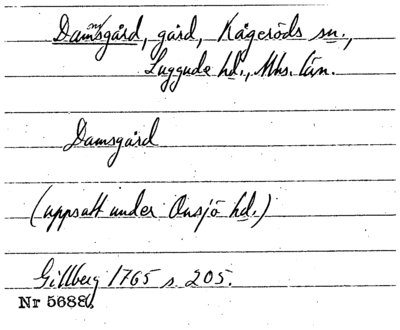 Damsgård, gård, Kågeröds sn.,
Luggude hd., Mhs. län.
Damsgård
(uppsatt under Onsjö hd.)
Gillberg 1765 s. 205.
Nr 5688,